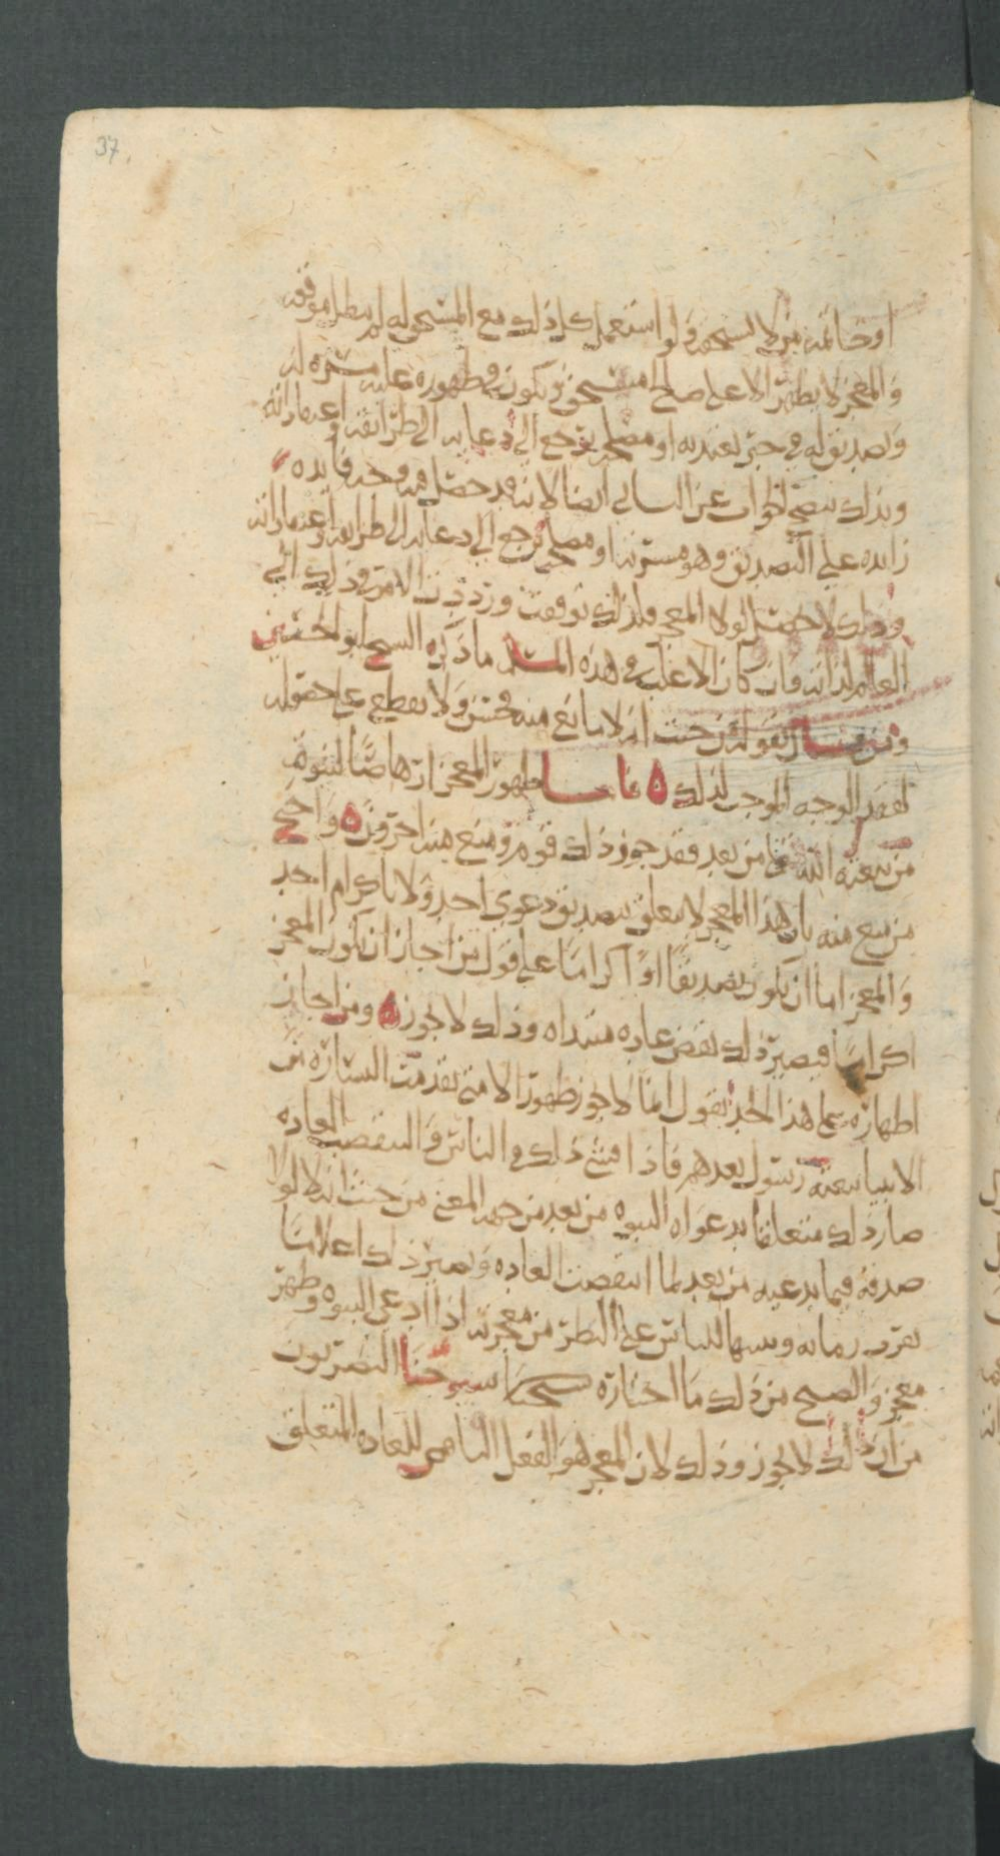 37
او خاتمه من لا يستحقه ولو استعمل كل ذلك مع المستحق له لم يبطل موقعه
والمعجز لا يظهر الا على صالح مستحق ويكون في ظهوره عليه مسره له
وتصديق له في خبر تعبد به او مصلحه ترجع الى دعايه الى طرايقه واعتباراته
وبذلك يتضح الجواب عن السالي ايضا لانه قد حصل فيه وجه فايده
زايده على التصديق وهو مسرته او مصلحه ترجع الى دعايه الى طرايقه واعتباراته
وذلك لا حصل لولا المعجز فلذلك توقفت ورددت الامر في ذلك الى
العالم لذاته وان كان الاغلب في هذه المسله ما ذكره الشيخ ابو الحسين
ومن قال بقوله من حيث انه لا مانع منه وحسن ولا نقطع على حصوله
لفقد الوجه الموجب لذلك ه فاما ظهور المعجز ارهاصا لنبوه
من يبعثه الله من بعد فقد جوز ذلك قوم ومنع منه اخرون ه واحتج
من منع منه بان هذا المعجز لا يتعلق بتصديق دعوى احد ولا باكرام احد
والمعجز اما ان يكون تصديقا او اكراما على قول من اجاز ان يكون المعجز
اكراما فيصير ذلك نقض عاده مبتداه وذلك لا يجوز ه ومن اجاز
اظهاره على هذا الحد يقول انما لا يجوز ظهوره الا متى تقدمت البشاره من
الانبيا ببعثه رسول بعدهم فاذا افشى ذلك في الناس وانتقضت العاده
صار ذلك متعلقا بدعواه النبوه من بعد من جهه المعنى من حيث انه لولا
صدقه فيما يدعيه من بعد لما انتقضت العاده ويصير ذلك اعلاما
بقرب زمانه وتنبيها للناس على النظر في معجزته اذا ادعى النبوه وظهر
معجز والصحيح من ذلك ما اختاره شيوخنا البصريون
من ان ذلك لا يجوز وذلك لان المعجز هو الفعل الناقض للعاده المتعلق